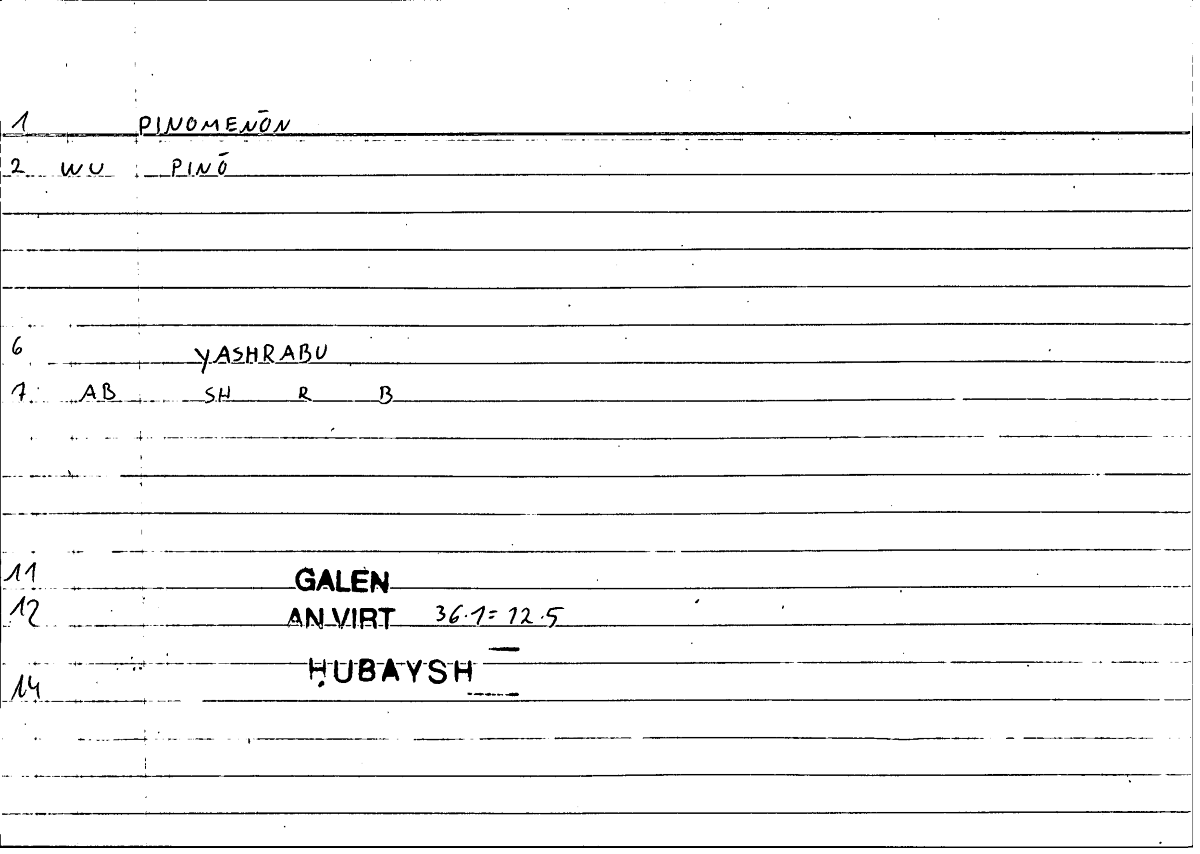 1 PINOMENŌN
2 WU PINŌ
6 YASHRABU
7 AB SH R B
11 GALEN
12 AN VIRT 36.1=12.5
ḤUBAYSH
14